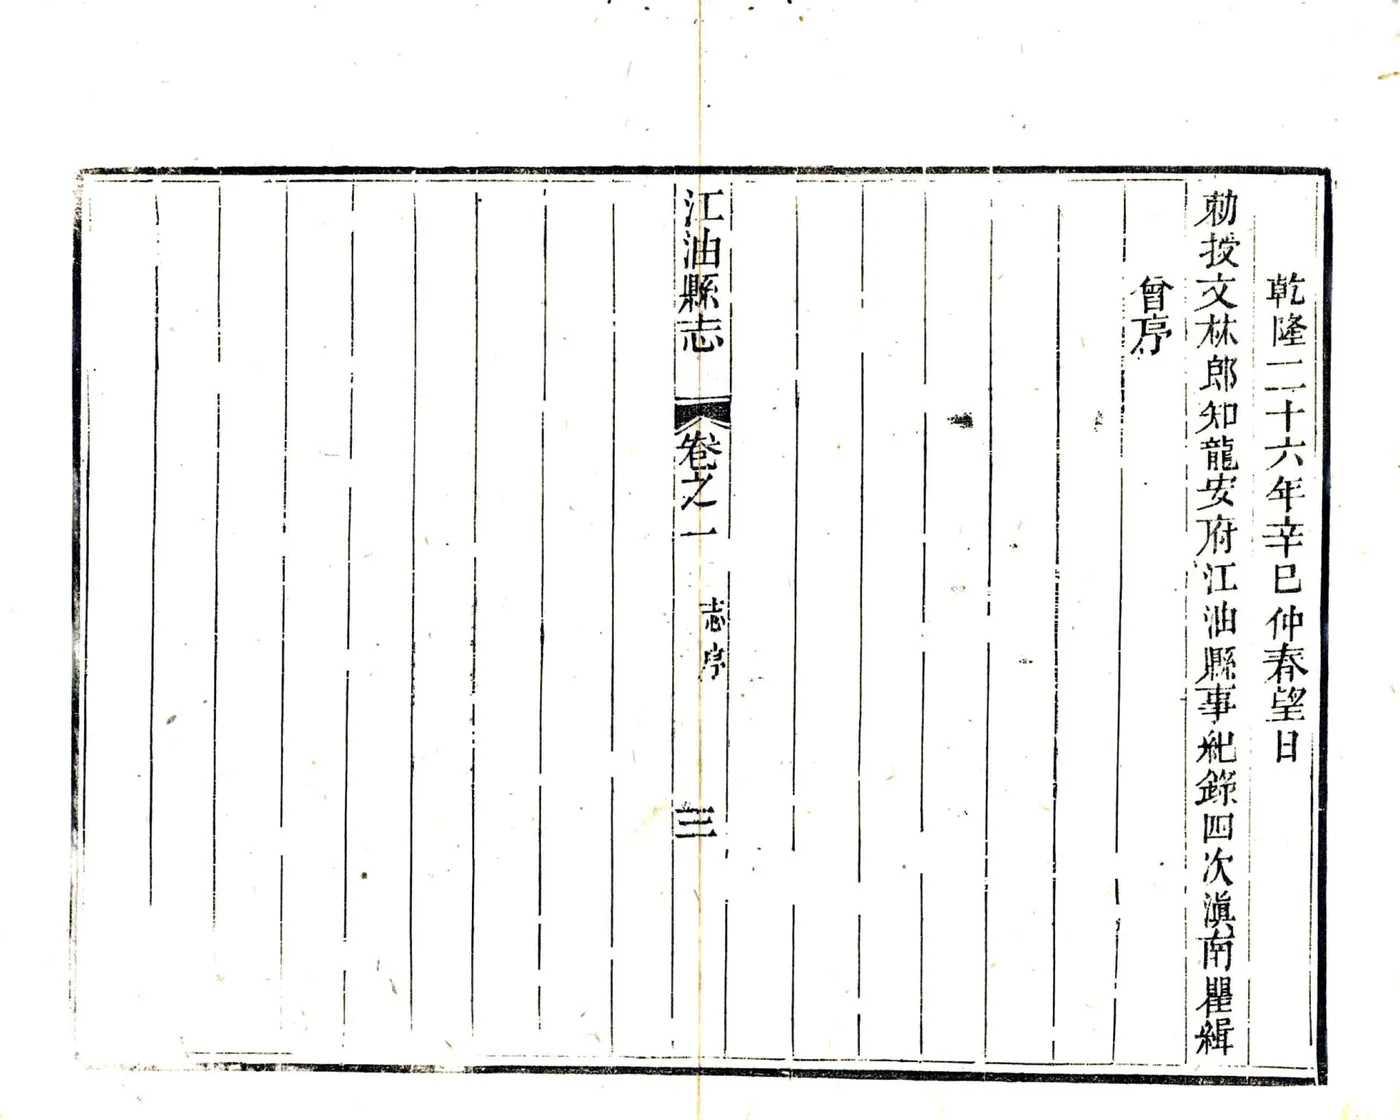 乾隆二十六年辛巳仲春望日
勅授文林郎知龍安府江油縣事紀錄四次滇南瞿緝
曾序
江油縣志
卷之一
志序
三